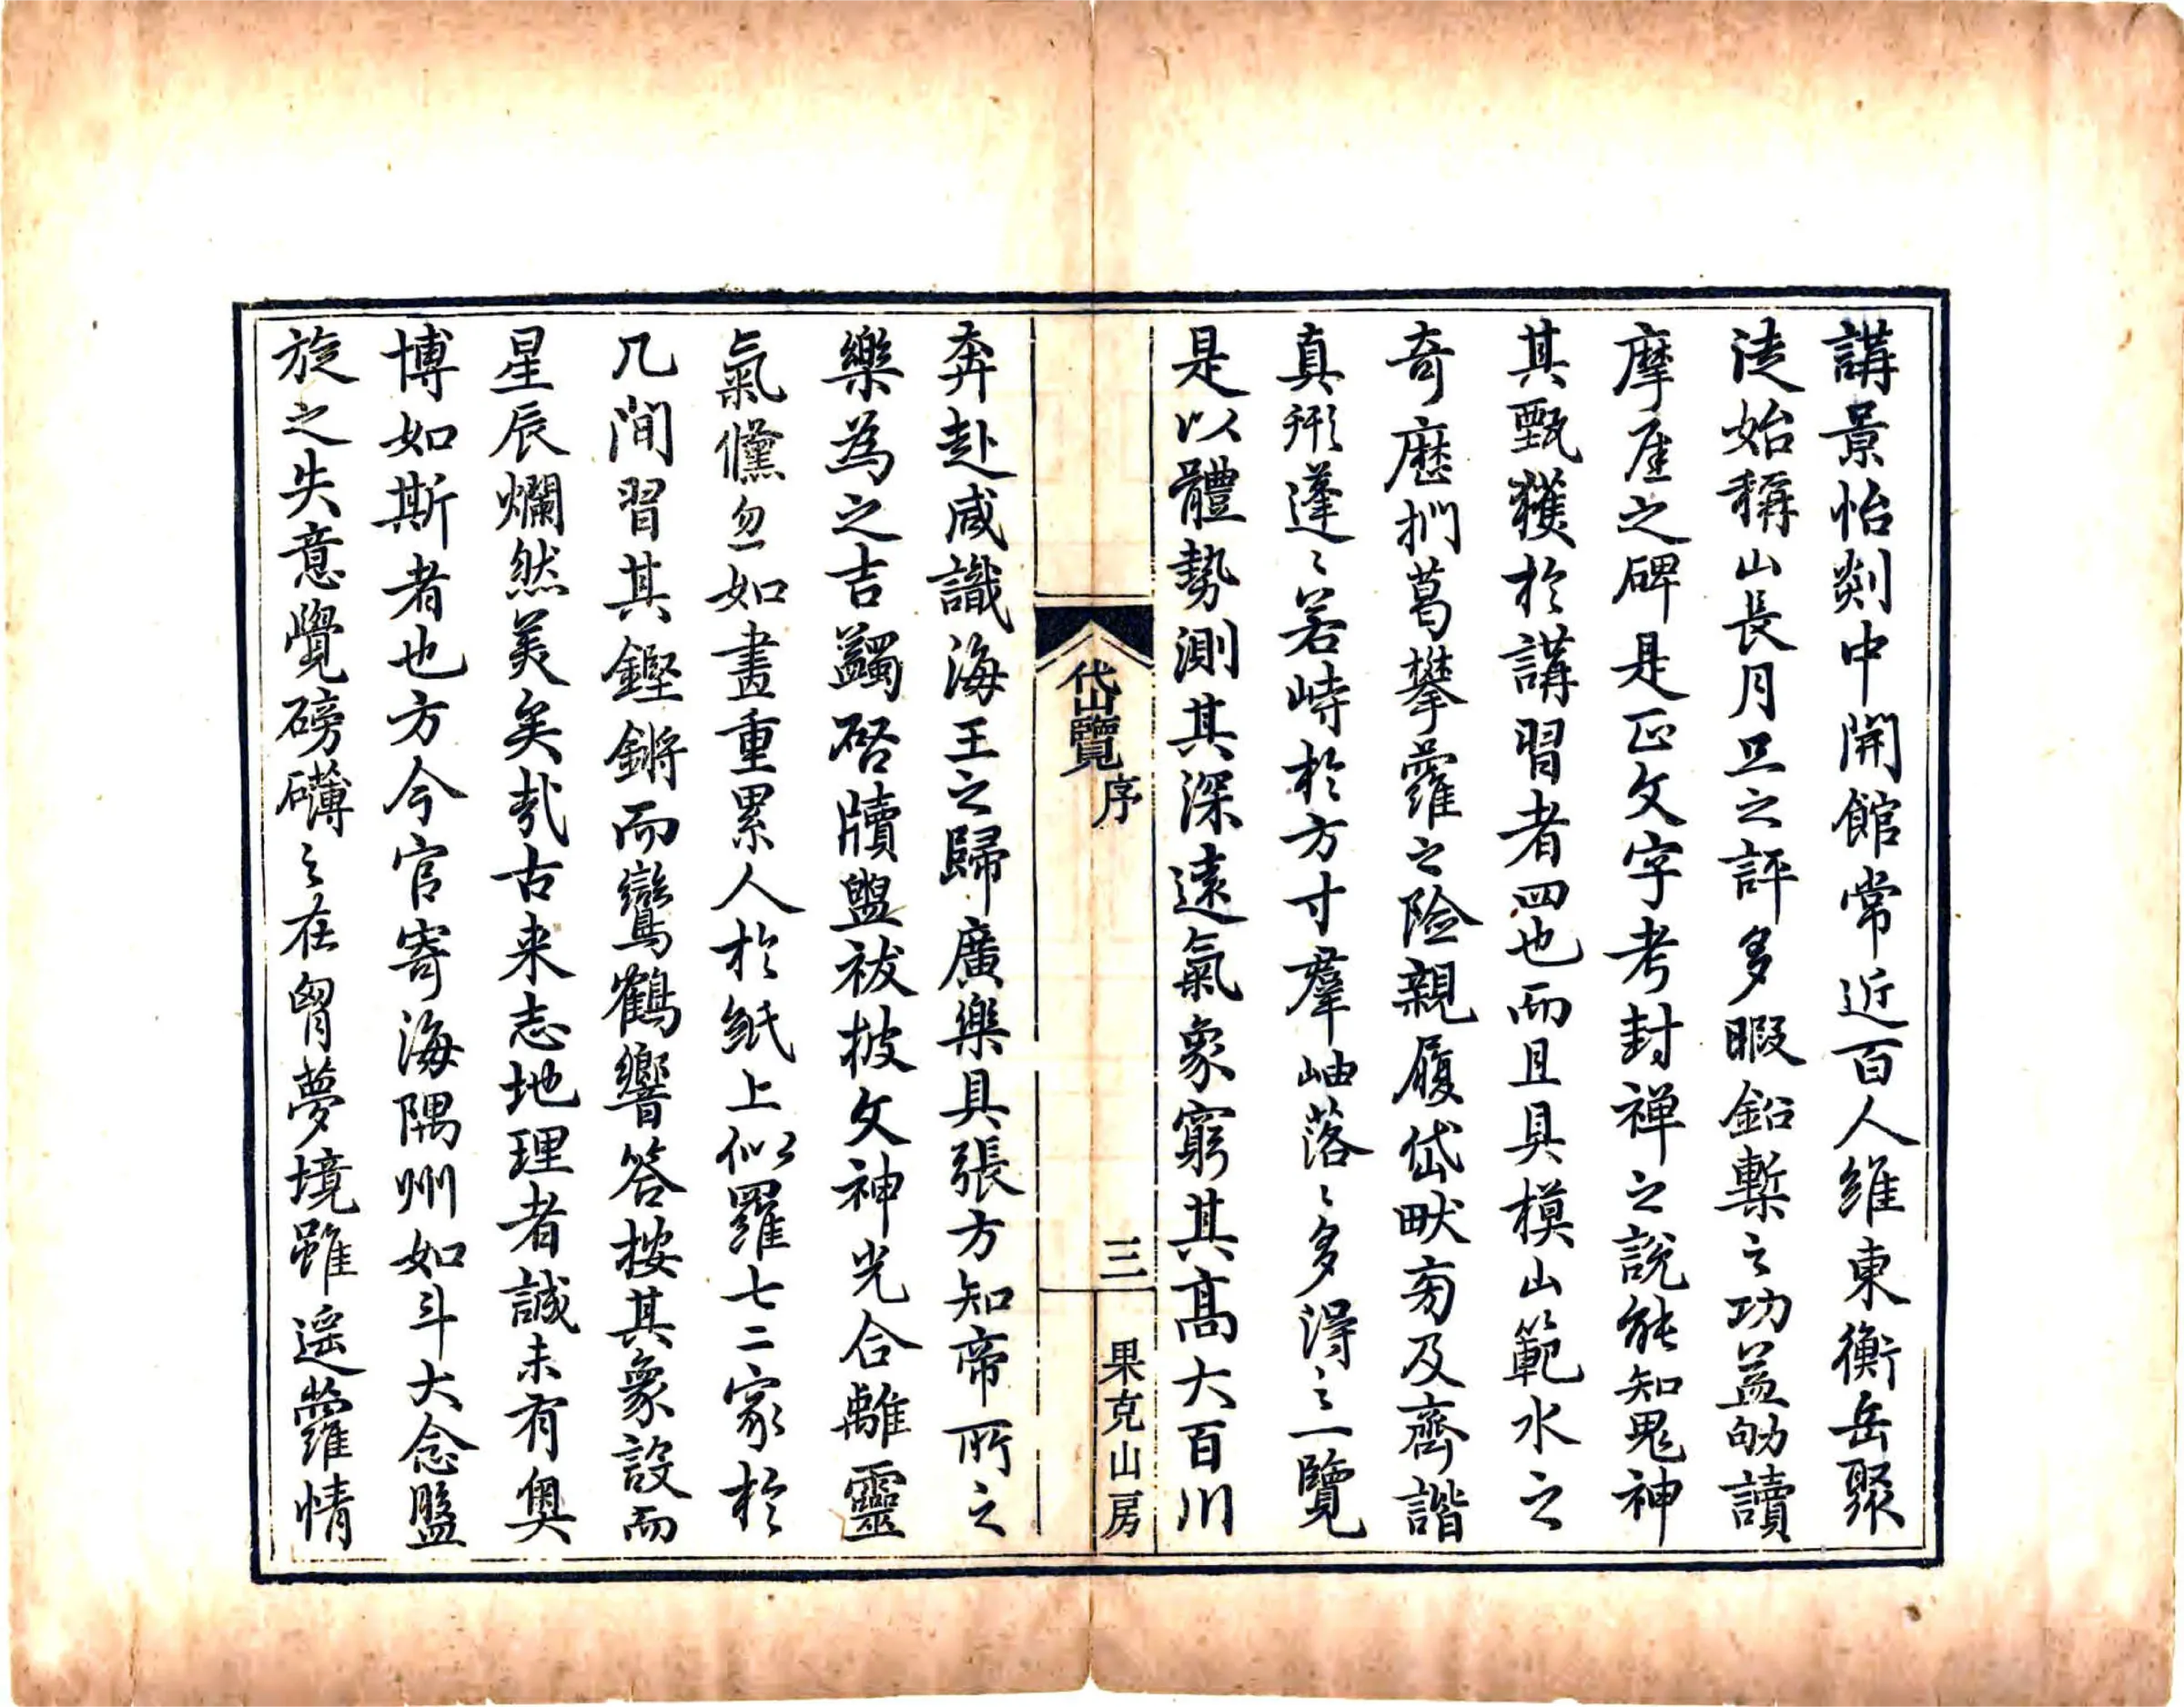 講景怡剡中開館常近百人維東衡岳聚
徒始稱山長月旦之評多暇鉛槧之功益劬讀
摩崖之碑是正文字考封禪之說能知鬼神
其甄獲於講習者四也而且具模山範水之
奇歷捫葛攀蘿之險親履岱畎旁及齊諧
真形蓬〻若峙於方寸羣岫落〻多得之一覽
是以體勢測其深遠氣象窮其高大百川
岱覽
序
三
果克山房
奔赴咸識海王之歸廣樂具張方知帝所之
樂為之吉蠲啓牘盥祓披文神光合離靈
氣儻忽如畫重累人於紙上似羅七二家於
几間習其鏗鏘而鸞鶴響答按其象設而
星辰爛然美矣哉古来志地理者誠未有奧
博如斯者也方今官寄海隅州如斗大念盬
旋之失意覺磅礴之在胷夢境雖遥蘿情